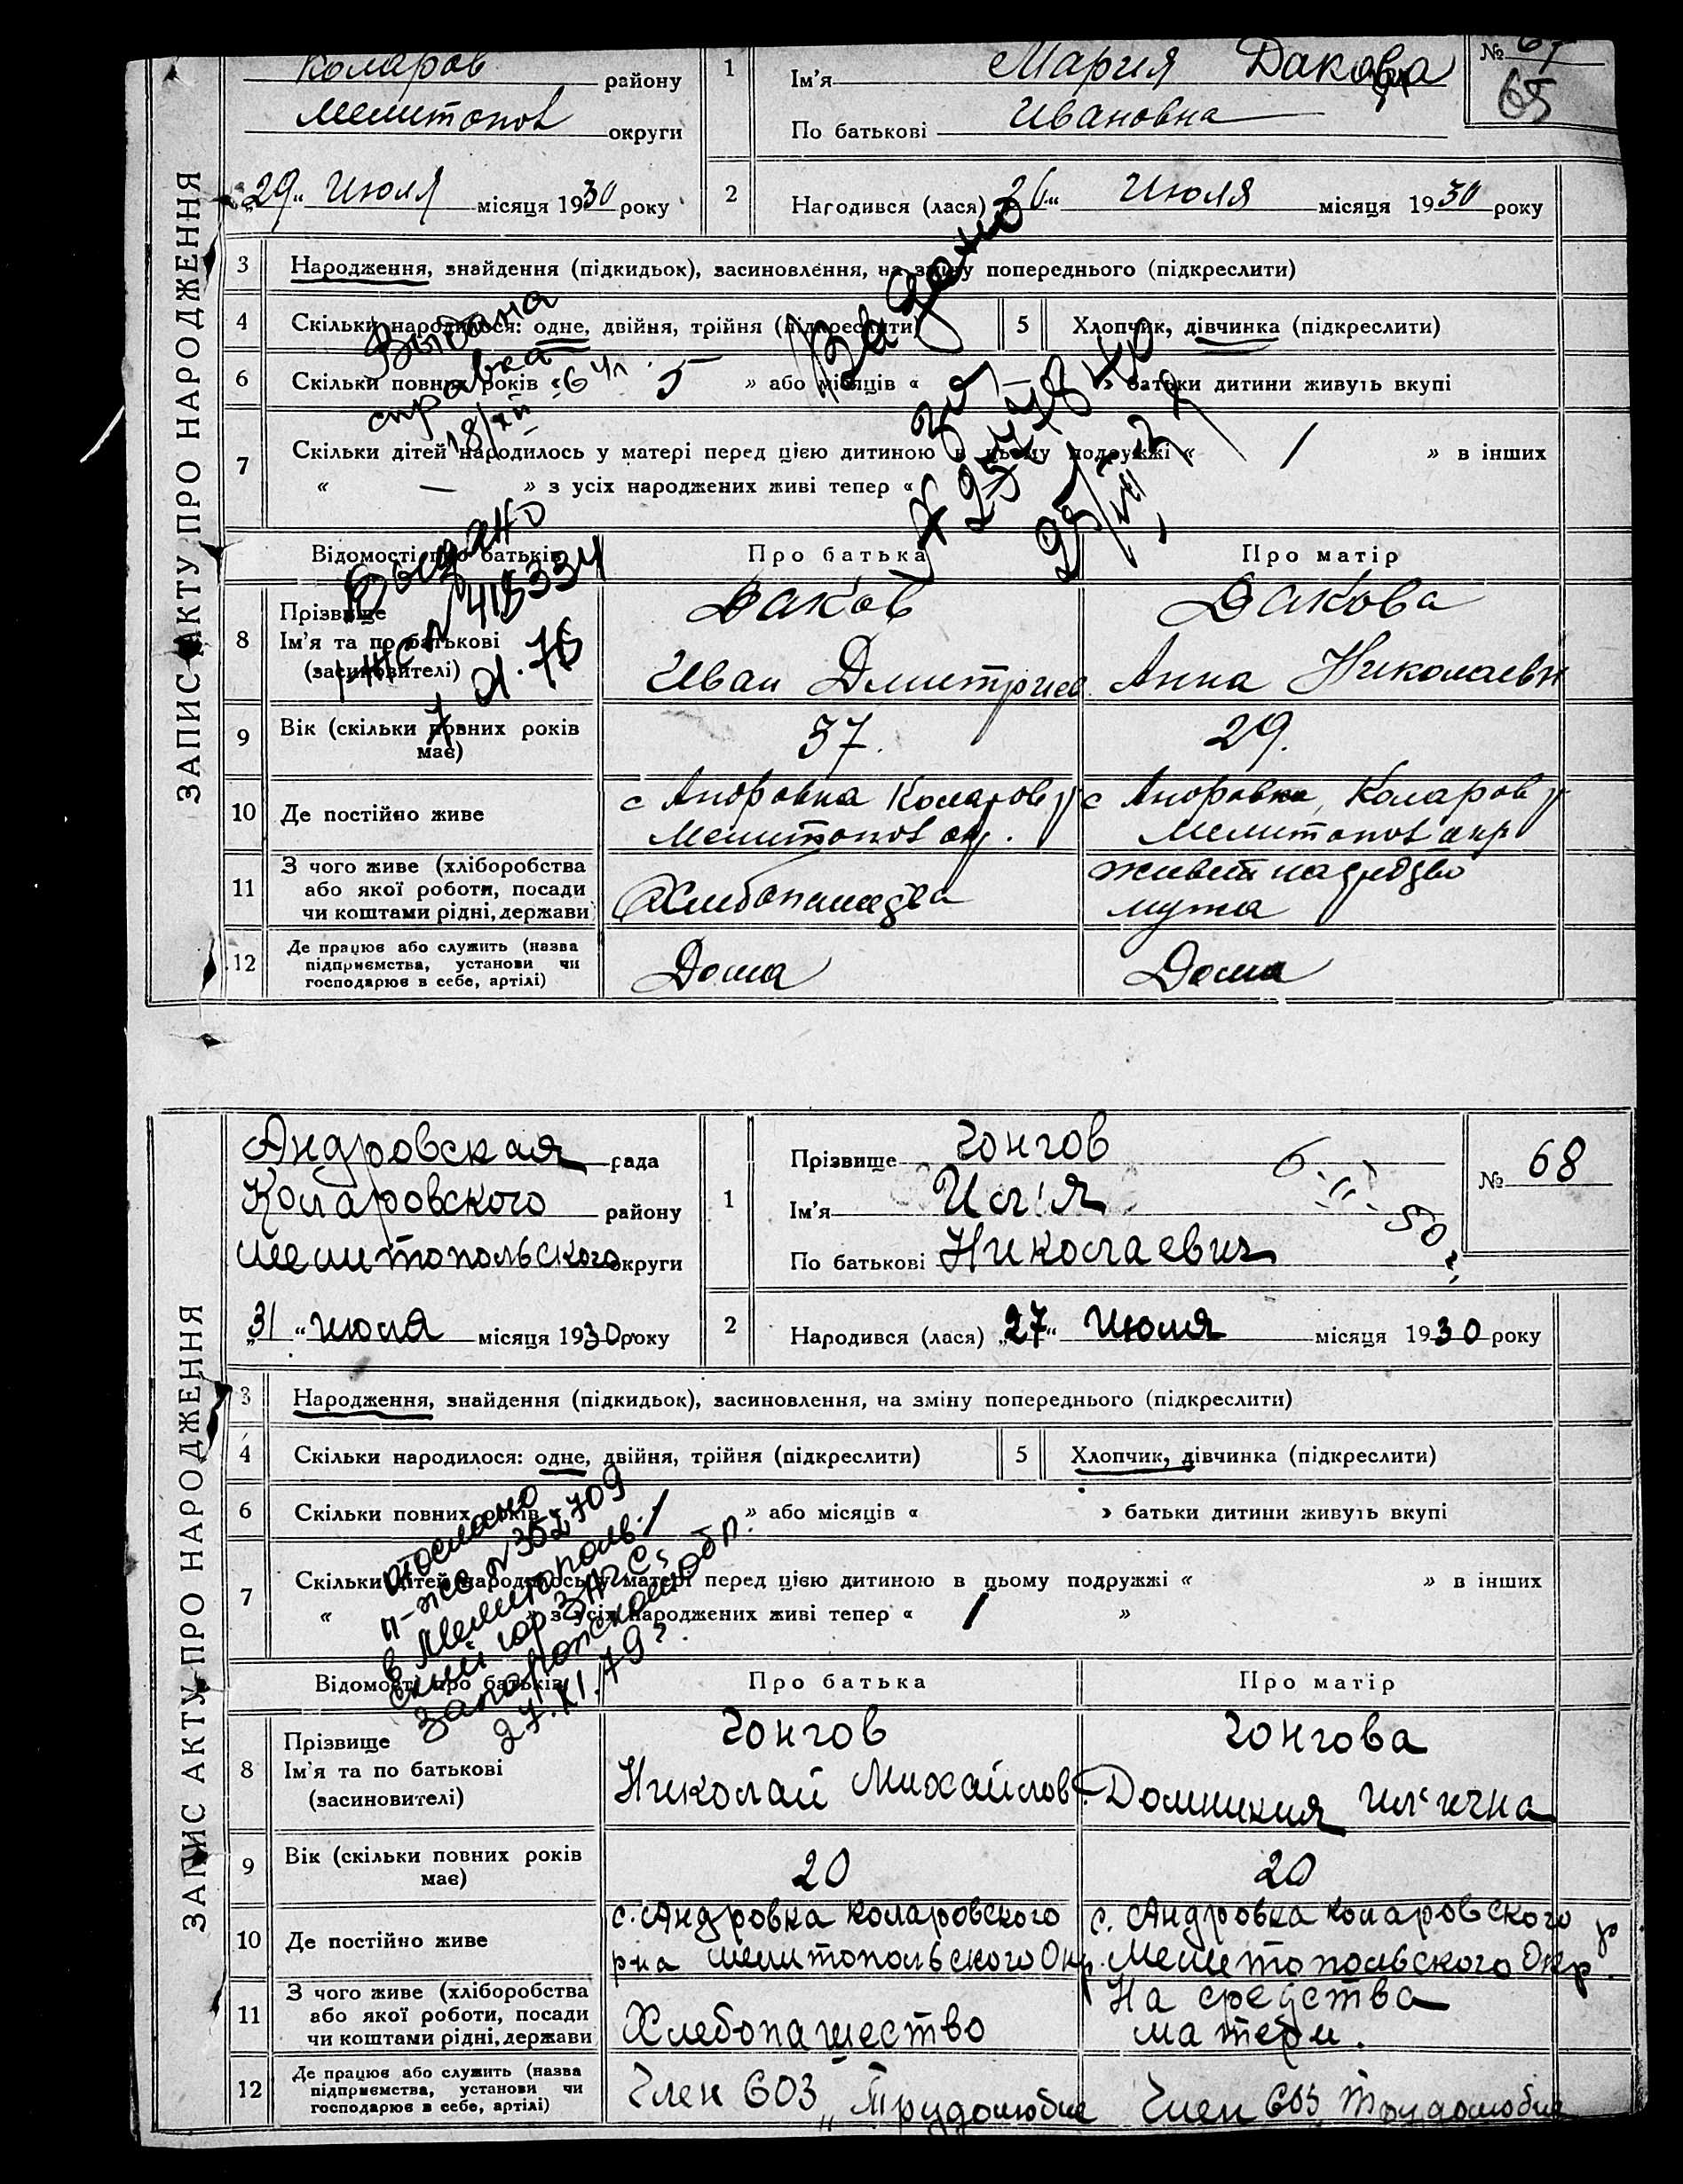 ЗАПИС АКТУ ПРО НАРОДЖЕННЯ
Коларов району
Мелитопол округи
„29“ Июля місяця 1930 року
1
Ім'я Мария Дакова
По батькові Ивановна
№
65
2 Народився (лася) 26“ Июля місяця 1930 року
3 Народження, знайдення (підкидьок), засиновлення, на зміну попереднього (підкреслити)
4 Скільки народилося: одне, двійня, трійня (підкреслити)
5 Хлопчик, дівчинка (підкреслити)
6 Скільки повних років « 5 » або місяців « » батьки дитини живуть вкупі
7 Скільки дітей народилось у матері перед цією дитиною в цьому подружжі « / » в інших
« — » з усіх народжених живі тепер «
Выдана
справка
Выдано
Выдано
№ 415334
Відомості про батьків
Про батька
Про матір
8 Прізвище
Ім'я та по батькові
(засиновителі)
Даков
Иван Дмитриев
Дакова
Анна Николаевн
9 Вік (скільки повних років має)
37.
29.
10 Де постійно живе
с Андровка Коларов р
Мелитопол окр.
с Андровка, Коларов р
Мелитопол окр
11 З чого живе (хліборобства
або якої роботи, посади
чи коштами рідні, держави
мужа
12 Де працює або служить (назва
підприємства, установи чи
господарює в себе, артілі)
Дома
Дома
ЗАПИС АКТУ ПРО НАРОДЖЕННЯ
Андровская рада
Коларовского району
Мелитопольского округи
„31“ июля місяця 1930 року
1
Прізвище Гонгов
Ім'я Илія
По батькові Николаевич
№ 68
2 Народився (лася) „27“ Июля місяця 1930 року
3 Народження, знайдення (підкидьок), засиновлення, на зміну попереднього (підкреслити)
4 Скільки народилося: одне, двійня, трійня (підкреслити)
5 Хлопчик, дівчинка (підкреслити)
6 Скільки повних років / » або місяців « » батьки дитини живуть вкупі
7 Скільки дітей народилось у матері перед цією дитиною в цьому подружжі « » в інших
« » з усіх народжених живі тепер « / »
отослано
п-жс № 352709
в Мелитополь-
ский горЗАГС,
Запорожской обл.
27.XI.79г.
Відомості про батьків
Про батька
Про матір
8 Прізвище
Ім'я та по батькові
(засиновителі)
Гонгов
Николай Михайлов
Гонгова
Домникия Ил'ична
9 Вік (скільки повних років має)
20
20
10 Де постійно живе
с. Андровка Коларовского
р-на Мелитопольского Окр.
с. Андровка Коларовского р
Мелитопольского Окр.
11 З чого живе (хліборобства
або якої роботи, посади
чи коштами рідні, держави
Хлебопашество
На средства
матери.
12 Де працює або служить (назва
підприємства, установи чи
господарює в себе, артілі)
Член СОЗ „Трудолюбие
Член СОЗ Трудолюбие